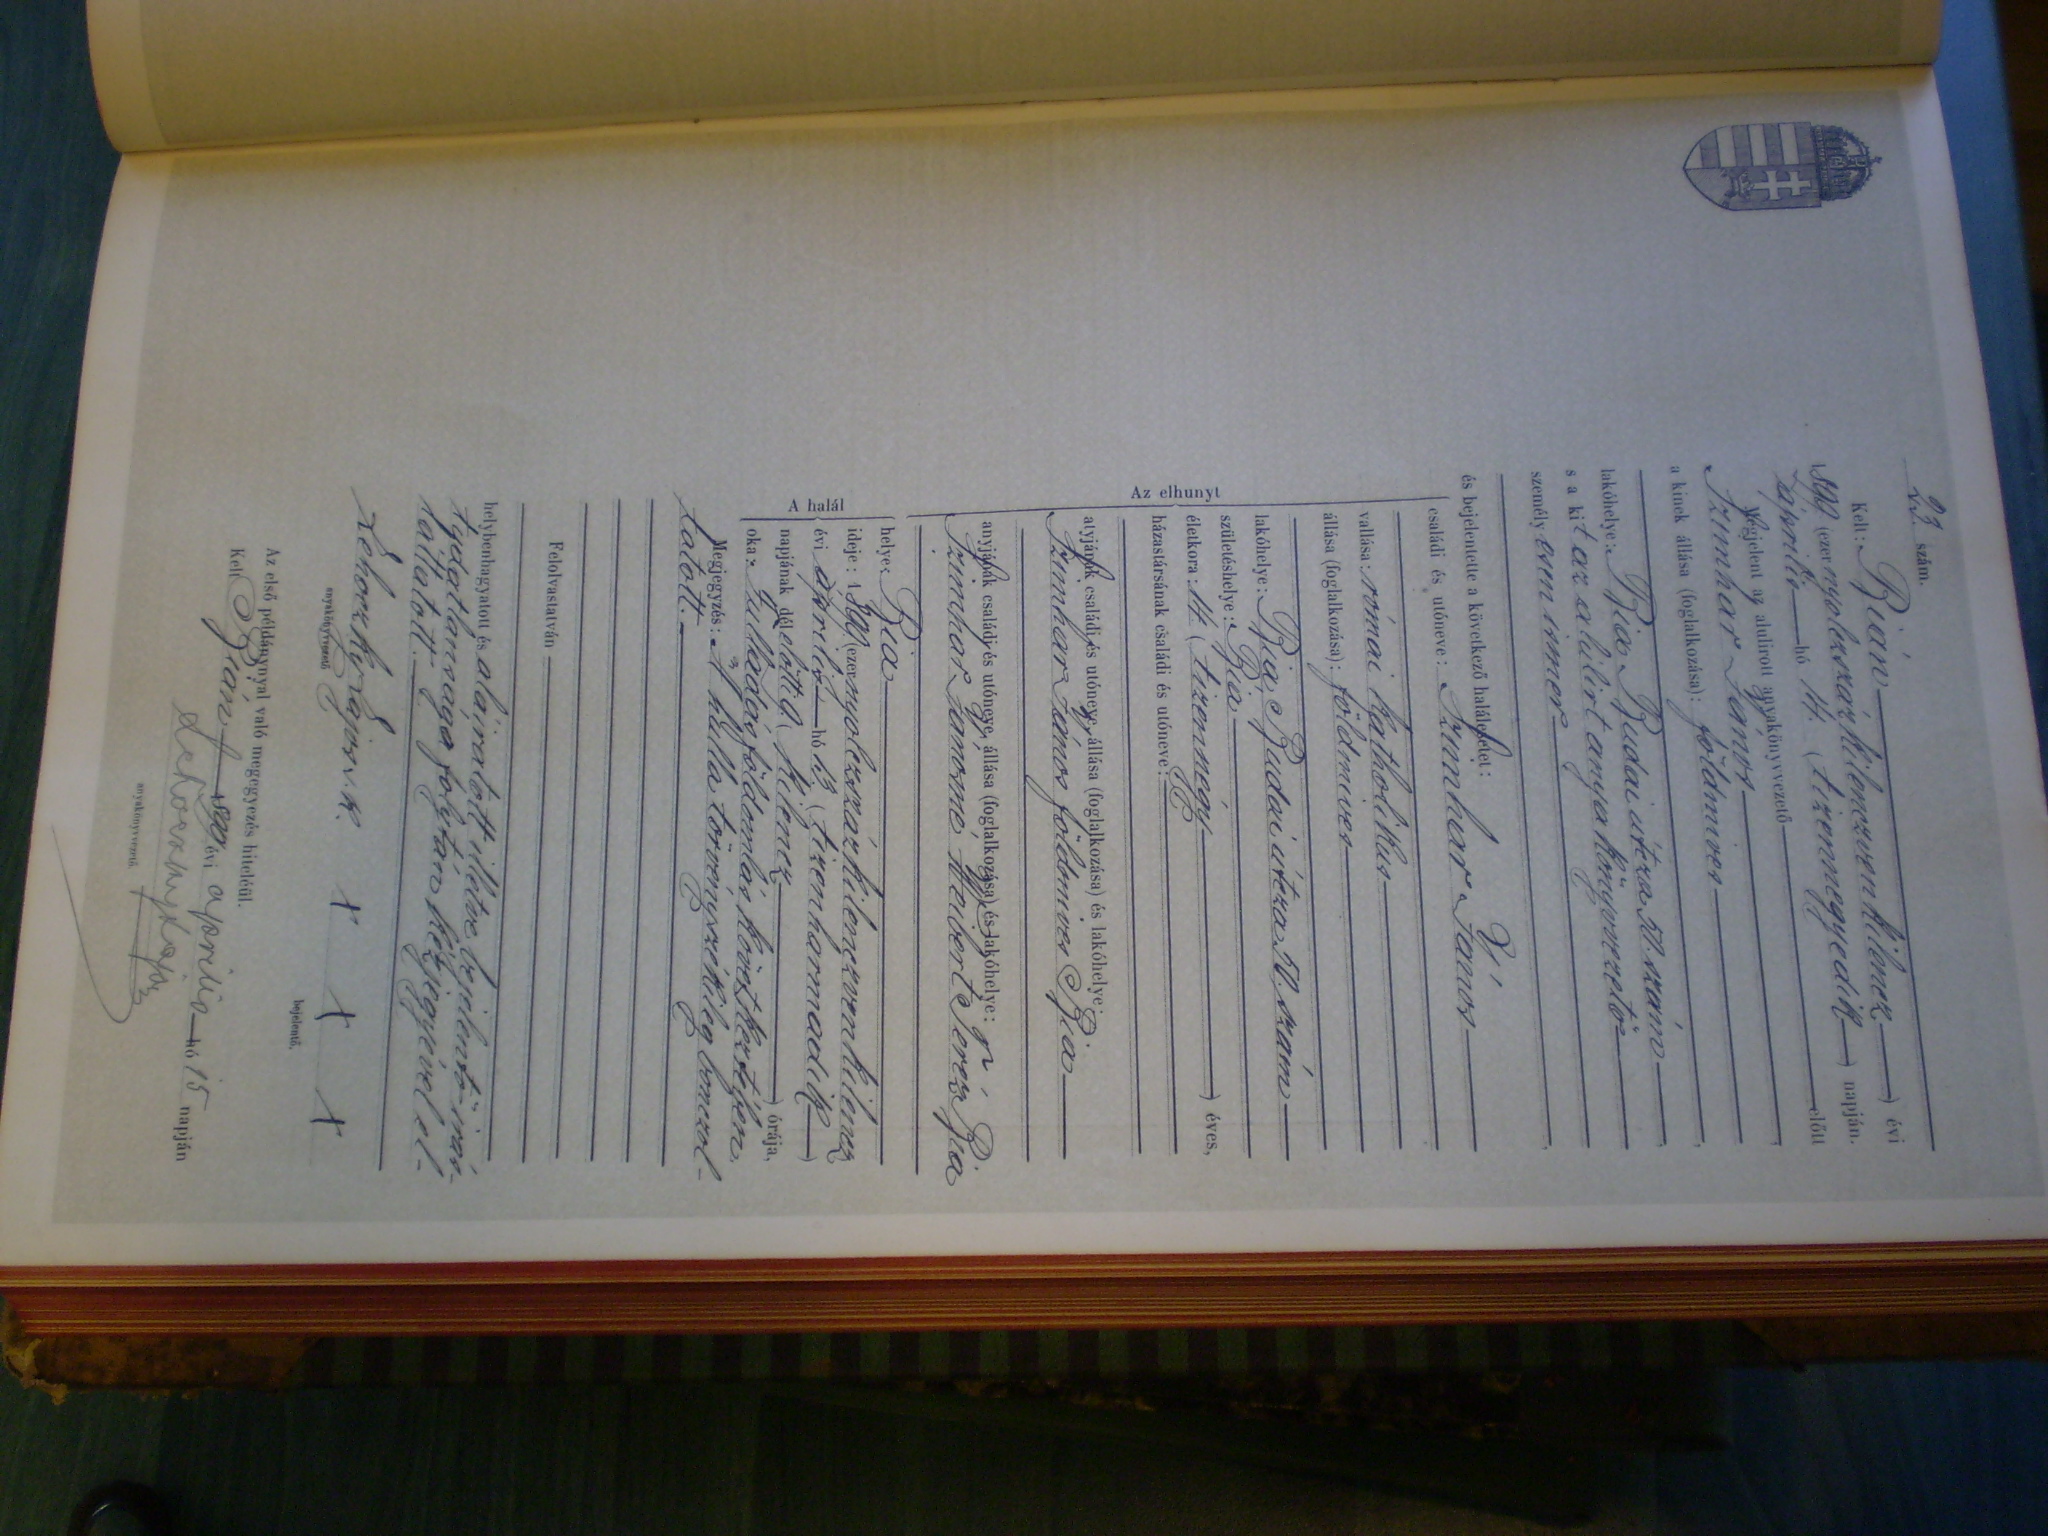 23. szám.
Kelt: Bián — 
1899 (ezer nyolczszázkilenczvenkilencz —) évi
április — hó 14. (tizennegyedik —) napján.
Megjelent az alulirott anyakönyvvezető — előtt
Szimhar János —
a kinek állása (foglalkozása): földmíves —,
lakóhelye: Bia, Budai útcza 50. szám —,
s a kit az alulirt anyakönyvvezető —
személyesen ismer —,
és bejelentette a következő halálesetet:
Az elhunyt
családi és utóneve: Szimhar János —
ifj.
vallása: római katholikus —
állása (foglalkozása): földmíves —
lakóhelye: Bia, Budai útcza 50. szám —
születéshelye: Bia —
életkora: 14. (tizennégy —) éves,
házastársának családi és utóneve: —
atyjának családi és utóneve, állása (foglalkozása) és lakóhelye:
Szimhar János földmíves Bia —
anyjának családi és utóneve, állása (foglalkozása) és lakóhelye:
Szimhar Jánosné, Weibert Teréz Bia
A halál
helye: Bia —
ideje: 1899 (ezer nyolczszázkilenczvenkilencz
évi április — hó 13 (tizenharmadik —)
napjának délelőtti 9 (kilencz —) órája,
oka: Fulladás földomlás következtében.
Megjegyzés: A hulla törvényszékileg bonczol-
tatott. —
Felolvastatván —
helybenhagyatott és aláiratott illetve bejelentő irás-
tudatlansága folytán kézjegyével el-
láttatott. —
Lehoczky Lajos s. k.
anyakönyvvezető
+ + +
bejelentő.
Az első példánynyal való megegyezés hiteléül.
Kelt Bián, 1899 évi április — hó 15 napján
Lehoczky Lajos
anyakönyvvezető.